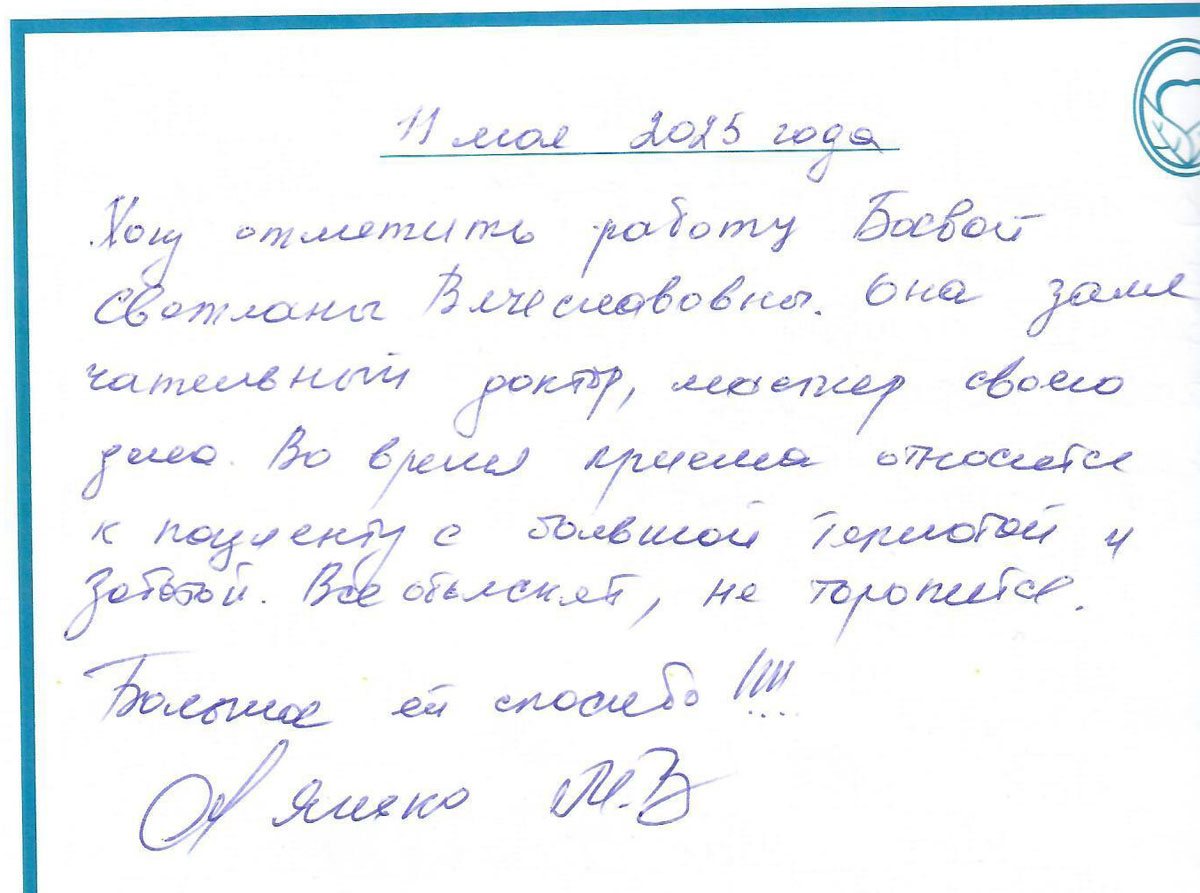 11 мая 2025 года
Хочу отметить работу Боевой
Светланы Вячеславовны. Она заме
чательный доктор, мастер своего
дела. Во время приема относится
к пациенту с большой теплотой и
заботой. Все объясняет, не торопится.
Большое ей спасибо!!!!
М.В